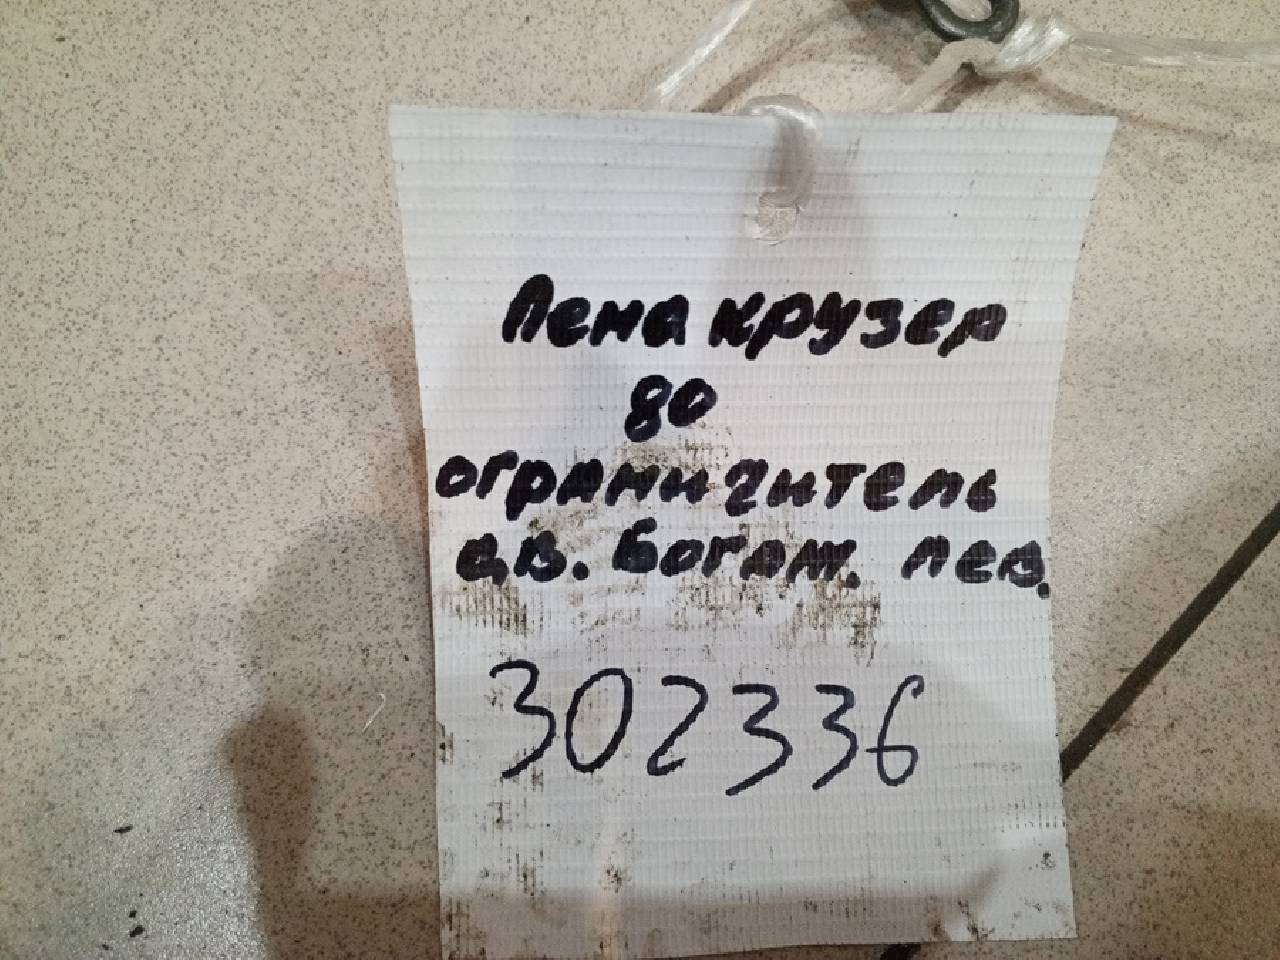 Ленд крузер
80
ограничитель
дв. багаж. лев.
302336